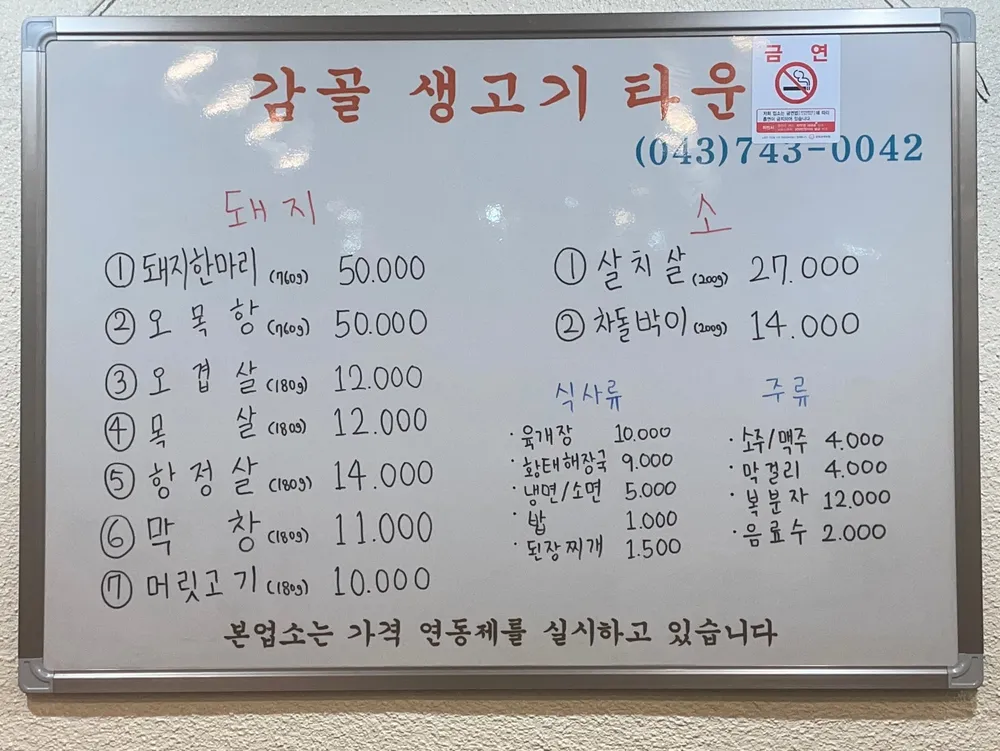 감골 생고기 타운
금 연
(043)743-0042
돼지
① 돼지한마리 (760g) 50.000
② 오목항 (760g) 50.000
③ 오겹살 (180g) 12.000
④ 목살 (180g) 12.000
⑤ 항정살 (180g) 14.000
⑥ 막창 (180g) 11.000
⑦ 머릿고기 (180g) 10.000
소
① 살치살 (200g) 27.000
② 차돌박이 (200g) 14.000
식사류
· 육개장 10.000
· 황태해장국 9.000
· 냉면/소면 5.000
· 밥 1.000
· 된장찌개 1.500
주류
· 소주/맥주 4.000
· 막걸리 4.000
· 복분자 12.000
· 음료수 2.000
본업소는 가격 연동제를 실시하고 있습니다